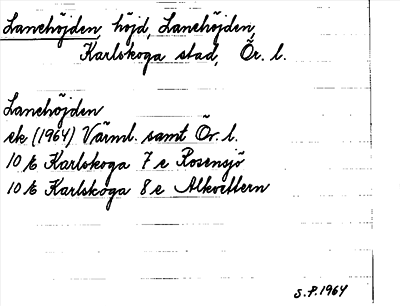 Lanehöjden, höjd, Lanehöjden,
Karlskoga stad, Ör. l.
Lanehöjden
ek (1964) Värml. samt Ör. l.
10 E Karlskoga 7 e Rosensjö
10 E Karlskoga 8 e Alkvettern
S.P. 1964